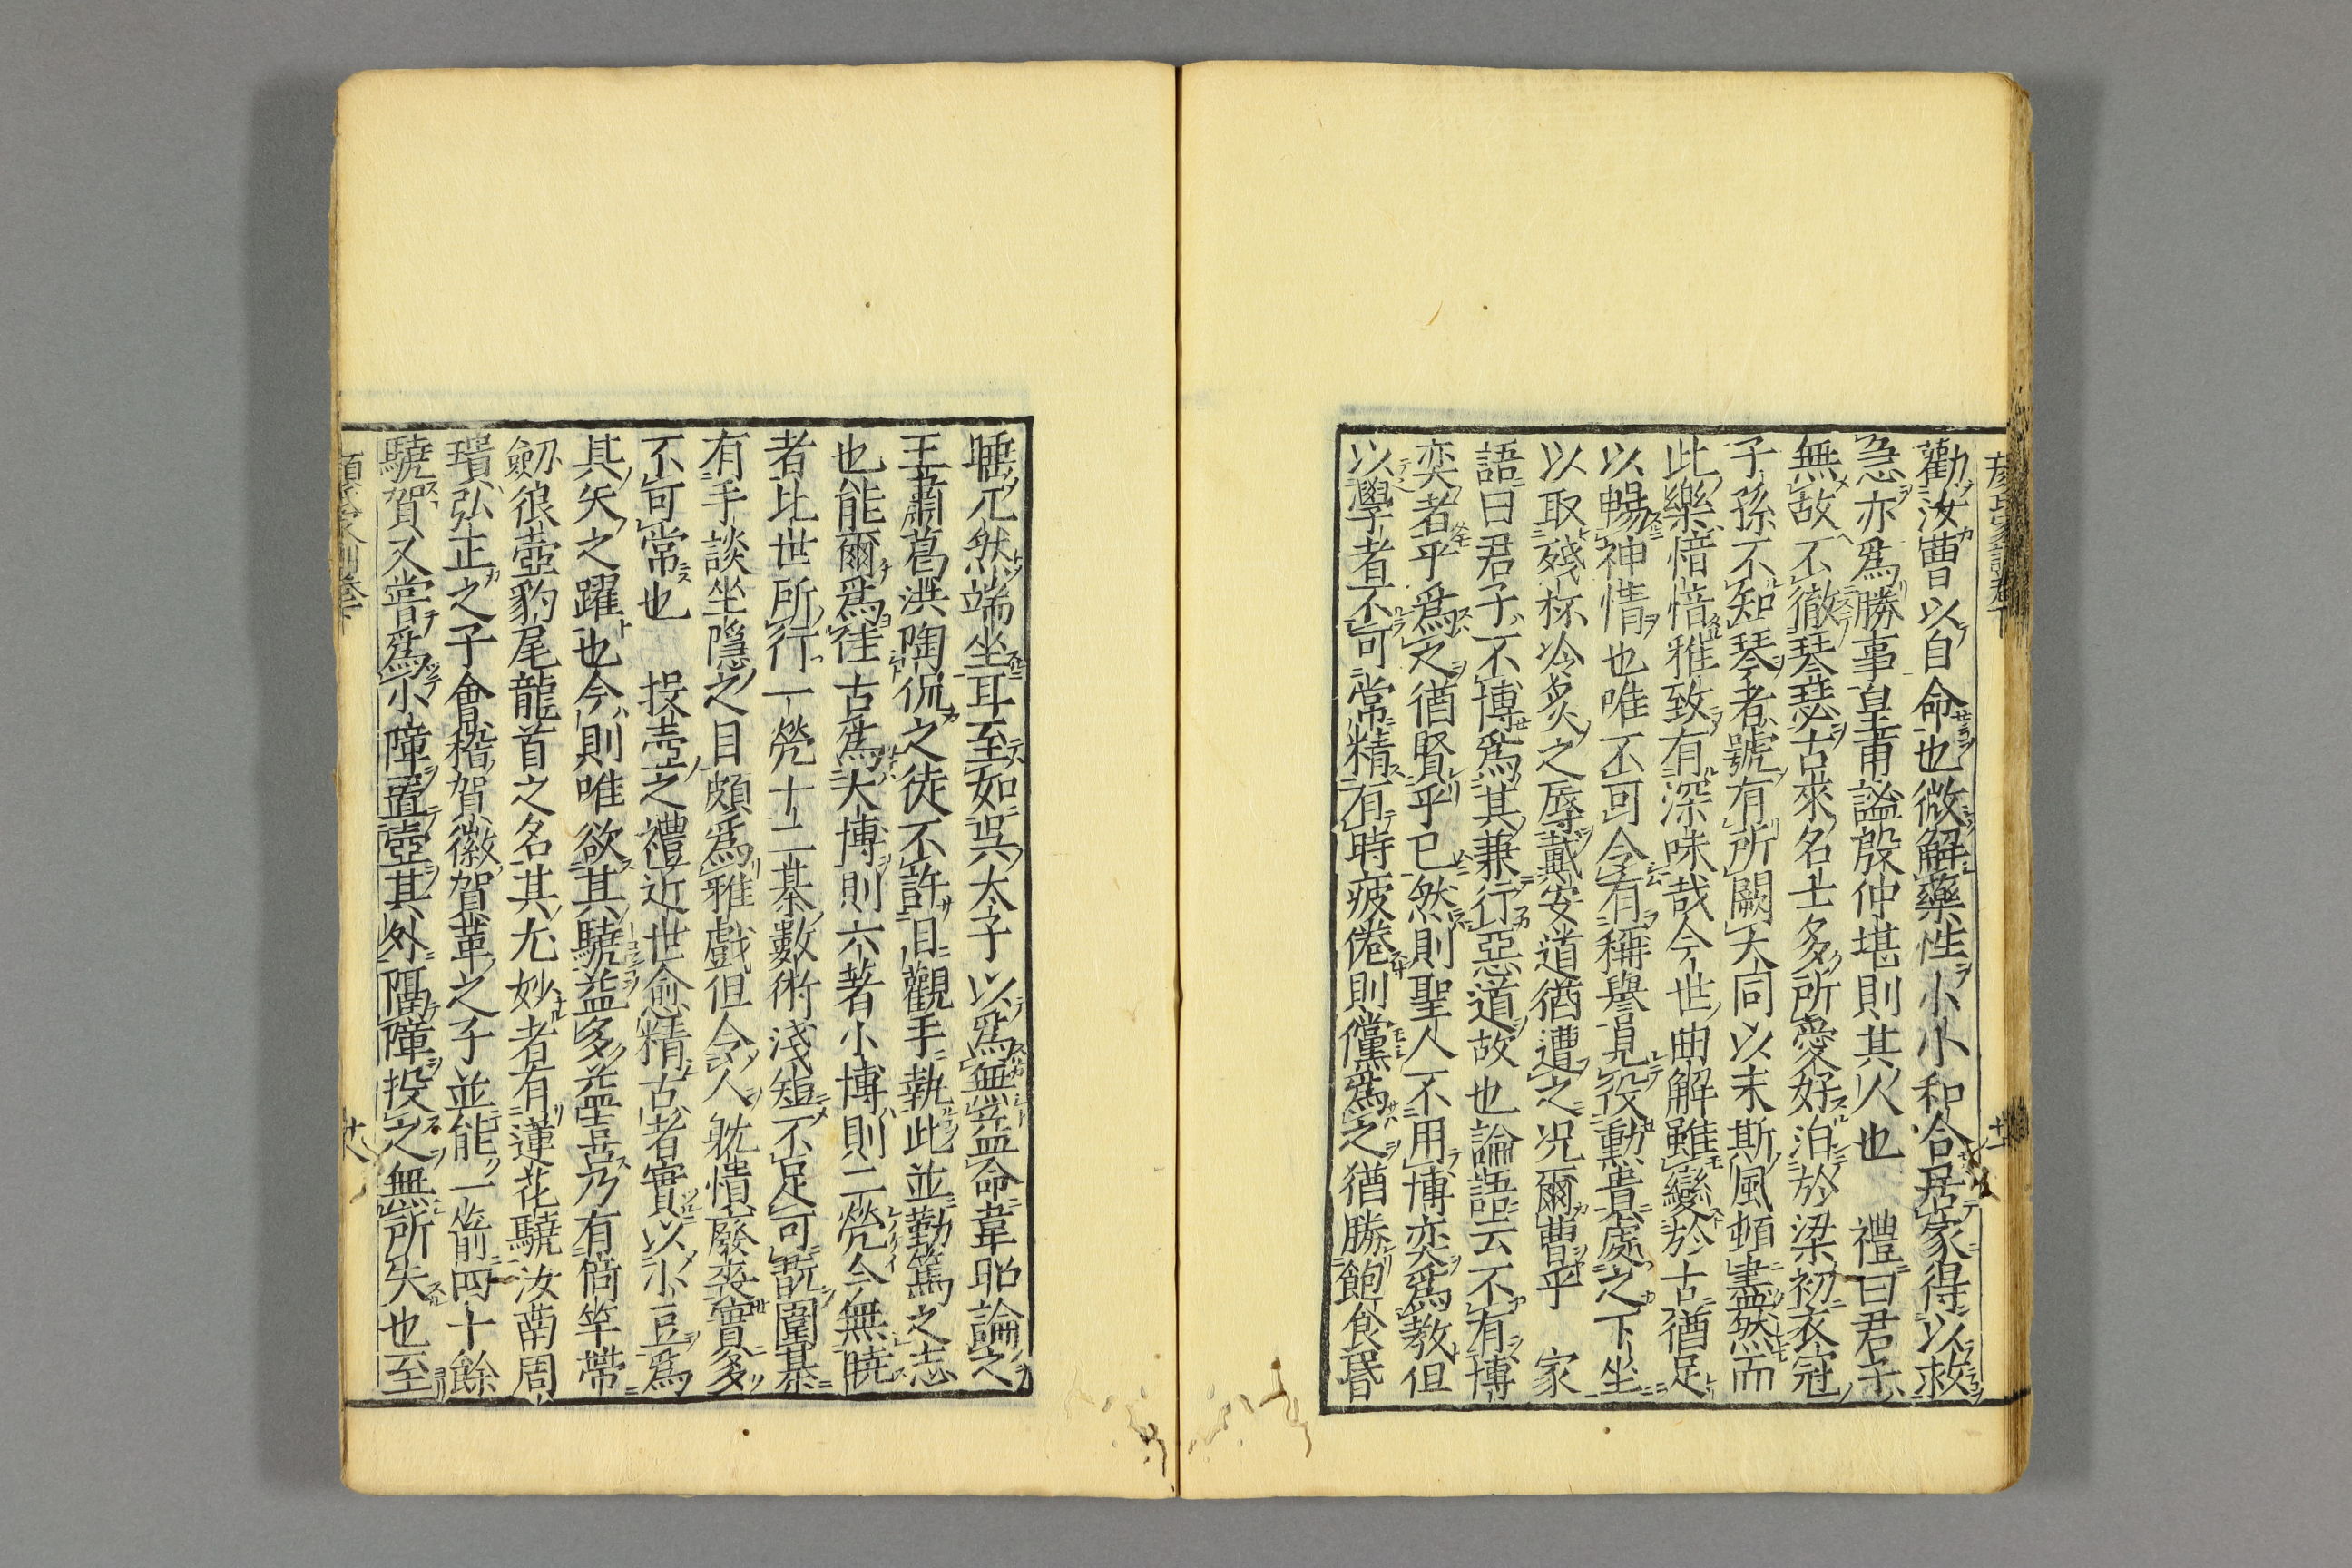 勸汝曹以自命也微解藥性小小和合居家得以救
急亦爲勝事皇甫謐殷仲堪則其人也　禮曰君子
無故不徹琴瑟古來名士多所愛好洎於梁初衣冠
子孫不知琴者號有所闕大同以末斯風頓盡然而
此樂愔愔雅致有深味哉今世曲解雖變於古猶足
以暢神情也唯不可令有稱譽見役勳貴處之下坐
以取殘杯冷炙之辱戴安道猶遭之况爾曹乎　家
語曰君子不博爲其兼行惡道故也論語云不有博
奕者乎爲之猶賢乎已然則聖人不用博奕爲教但
以學者不可常精有時疲倦則儻爲之猶勝飽食昏
睡兀然端坐耳至如吳太子以爲無益命韋昭論之
王肅葛洪陶侃之徒不許目觀手執此並勤篤之志
也能爾爲佳古爲大博則六著小博則二煢今無曉
者比世所行一煢十二棊數術淺短不足可翫圍棊
有手談坐隱之目頗爲雅戲但令人躭憒廢喪實多
不可常也　投壺之禮近世愈精古者實以小豆爲
其矢之躍也今則唯欲其驍益多益喜乃有倚竿帶
劒狼壺豹尾龍首之名其尤妙者有蓮花驍汝南周
璝弘正之子會稽賀徽賀革之子並能一箭四十餘
驍賀又嘗爲小障置壺其外隔障投之無所失也至